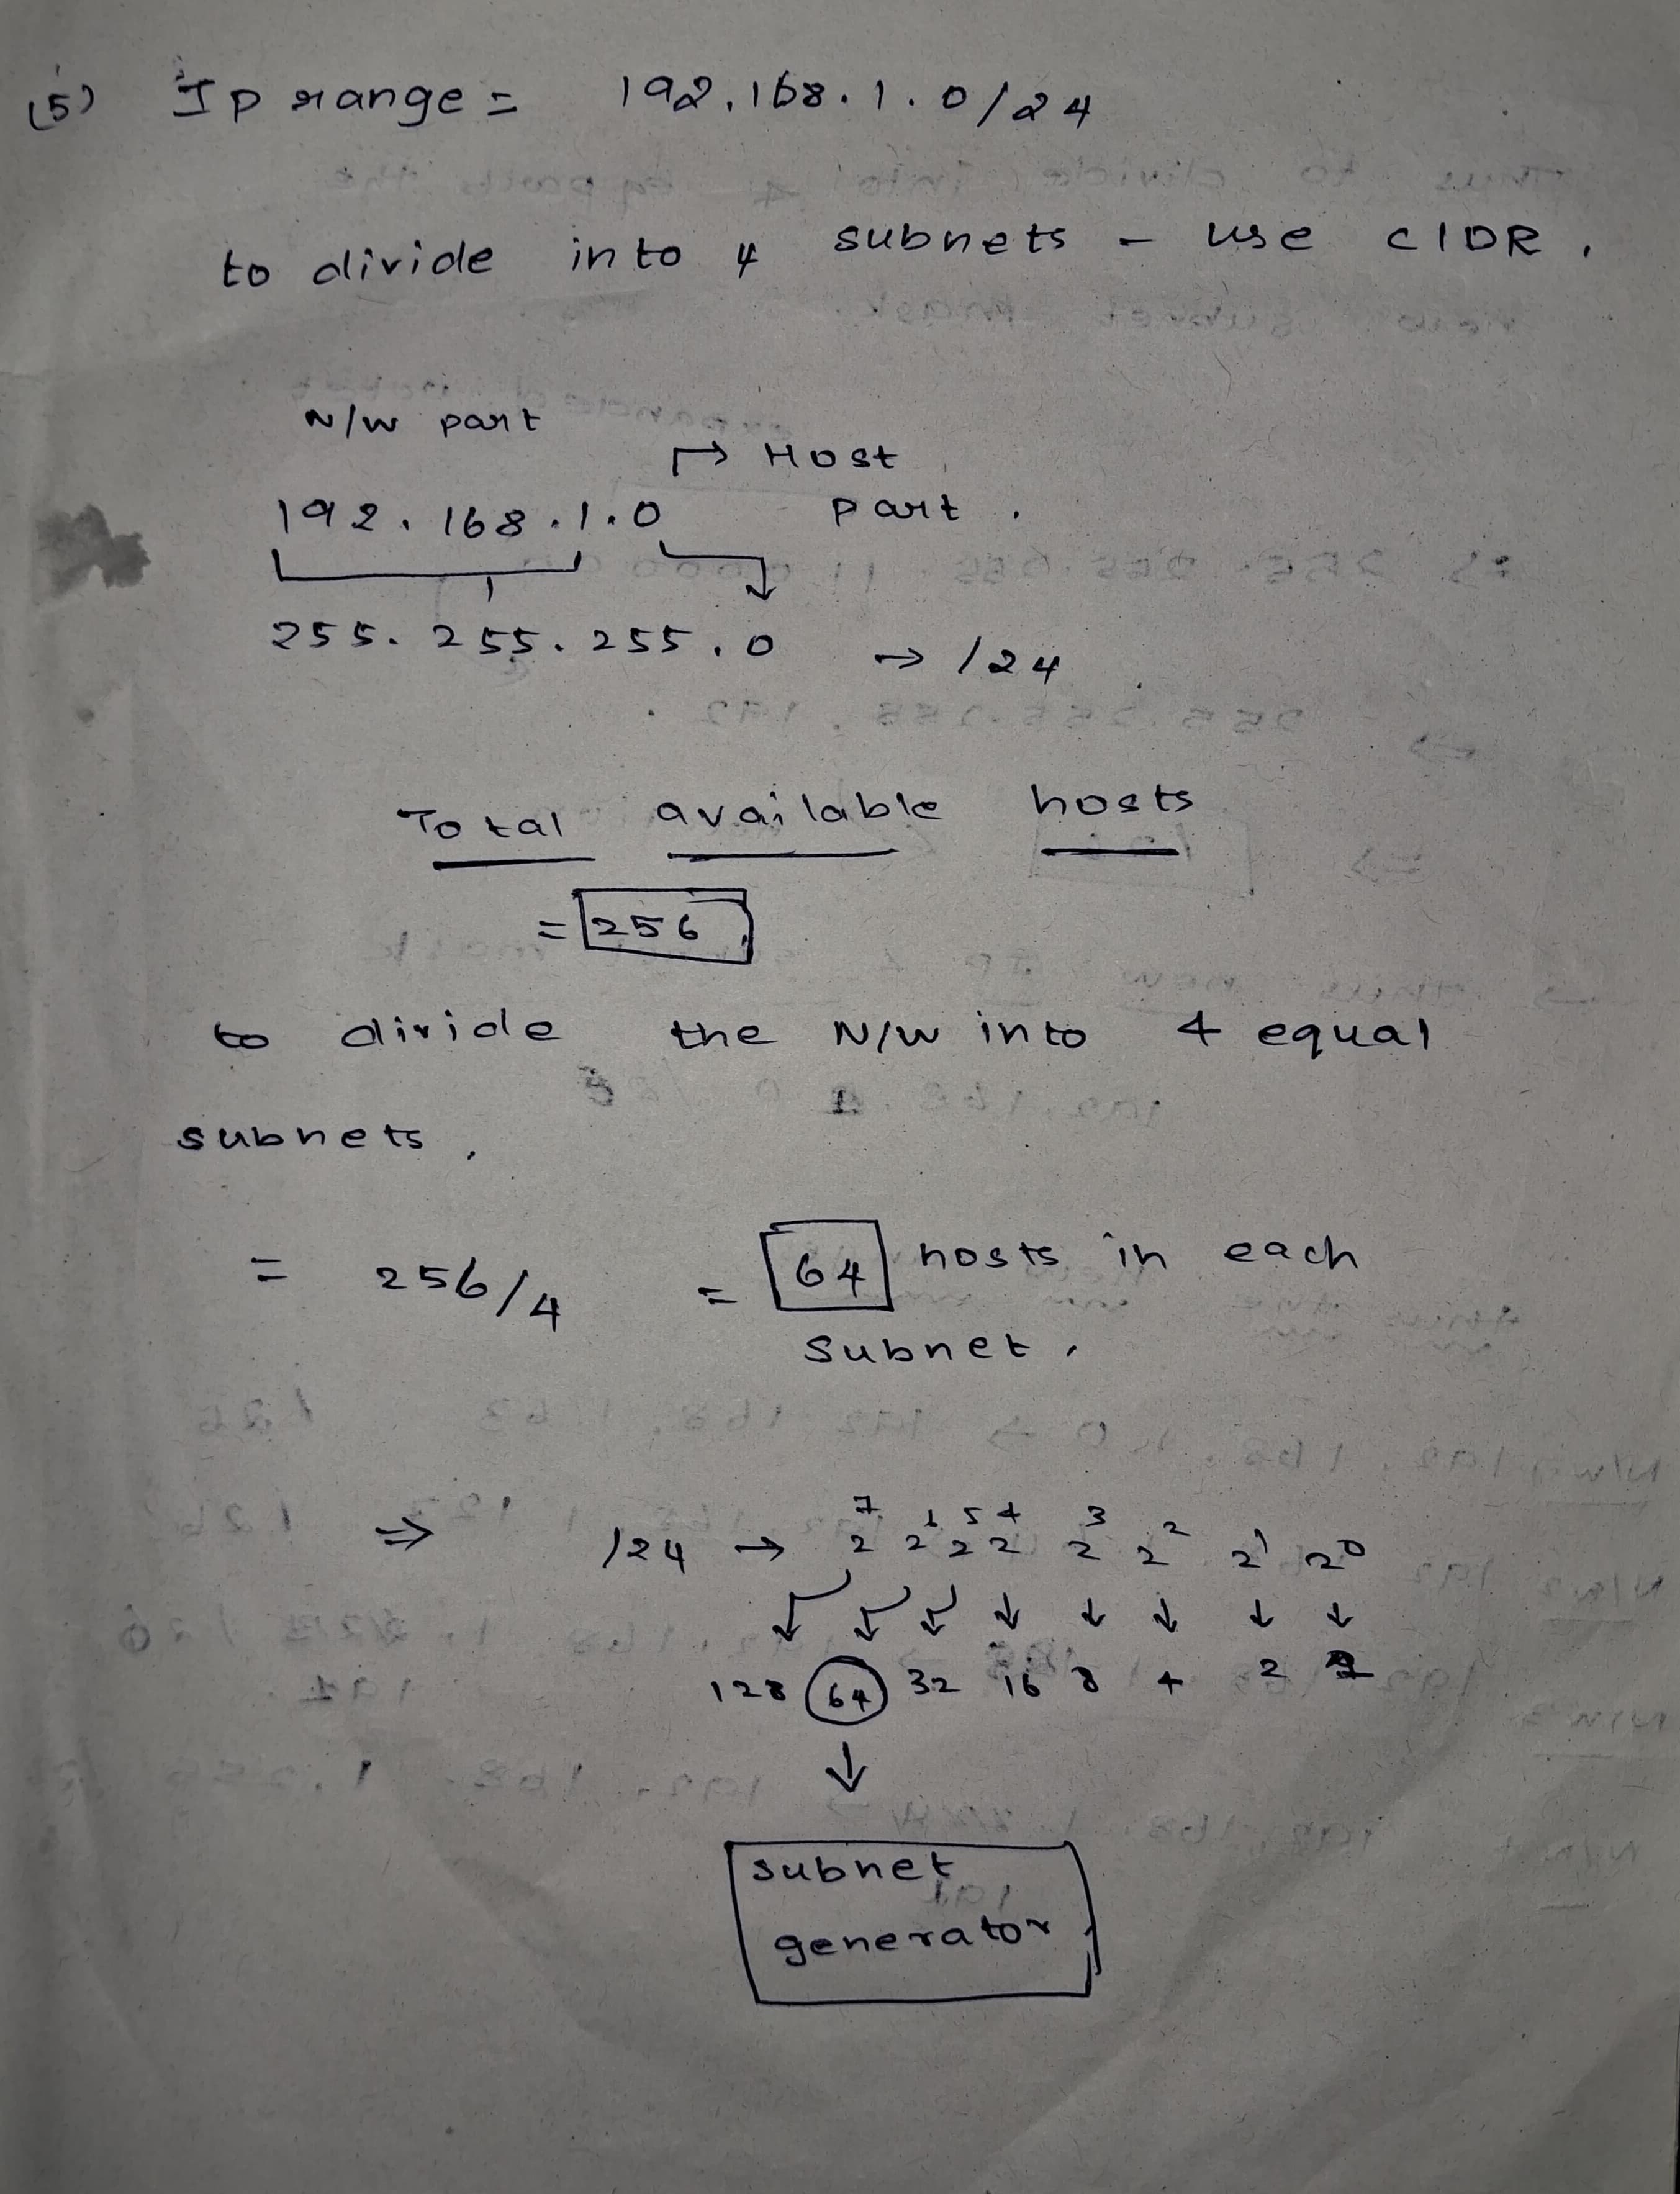 (5) Ip range = 192.168.1.0/24
to divide into 4 subnets - use CIDR.
N/W part
→ Host
192.168.1.0 part.
255.255.255.0 → /24
Total available hosts
= 256
to divide the N/W into 4 equal
subnets,
= 256/4 = 64 hosts in each
subnet.
⇒ /24 → 2⁷ 2⁶ 2⁵ 2⁴ 2³ 2² 2¹ 2⁰
↓ ↓ ↓ ↓ ↓ ↓ ↓ ↓
128 64 32 16 8 4 2
↓
subnet
generator